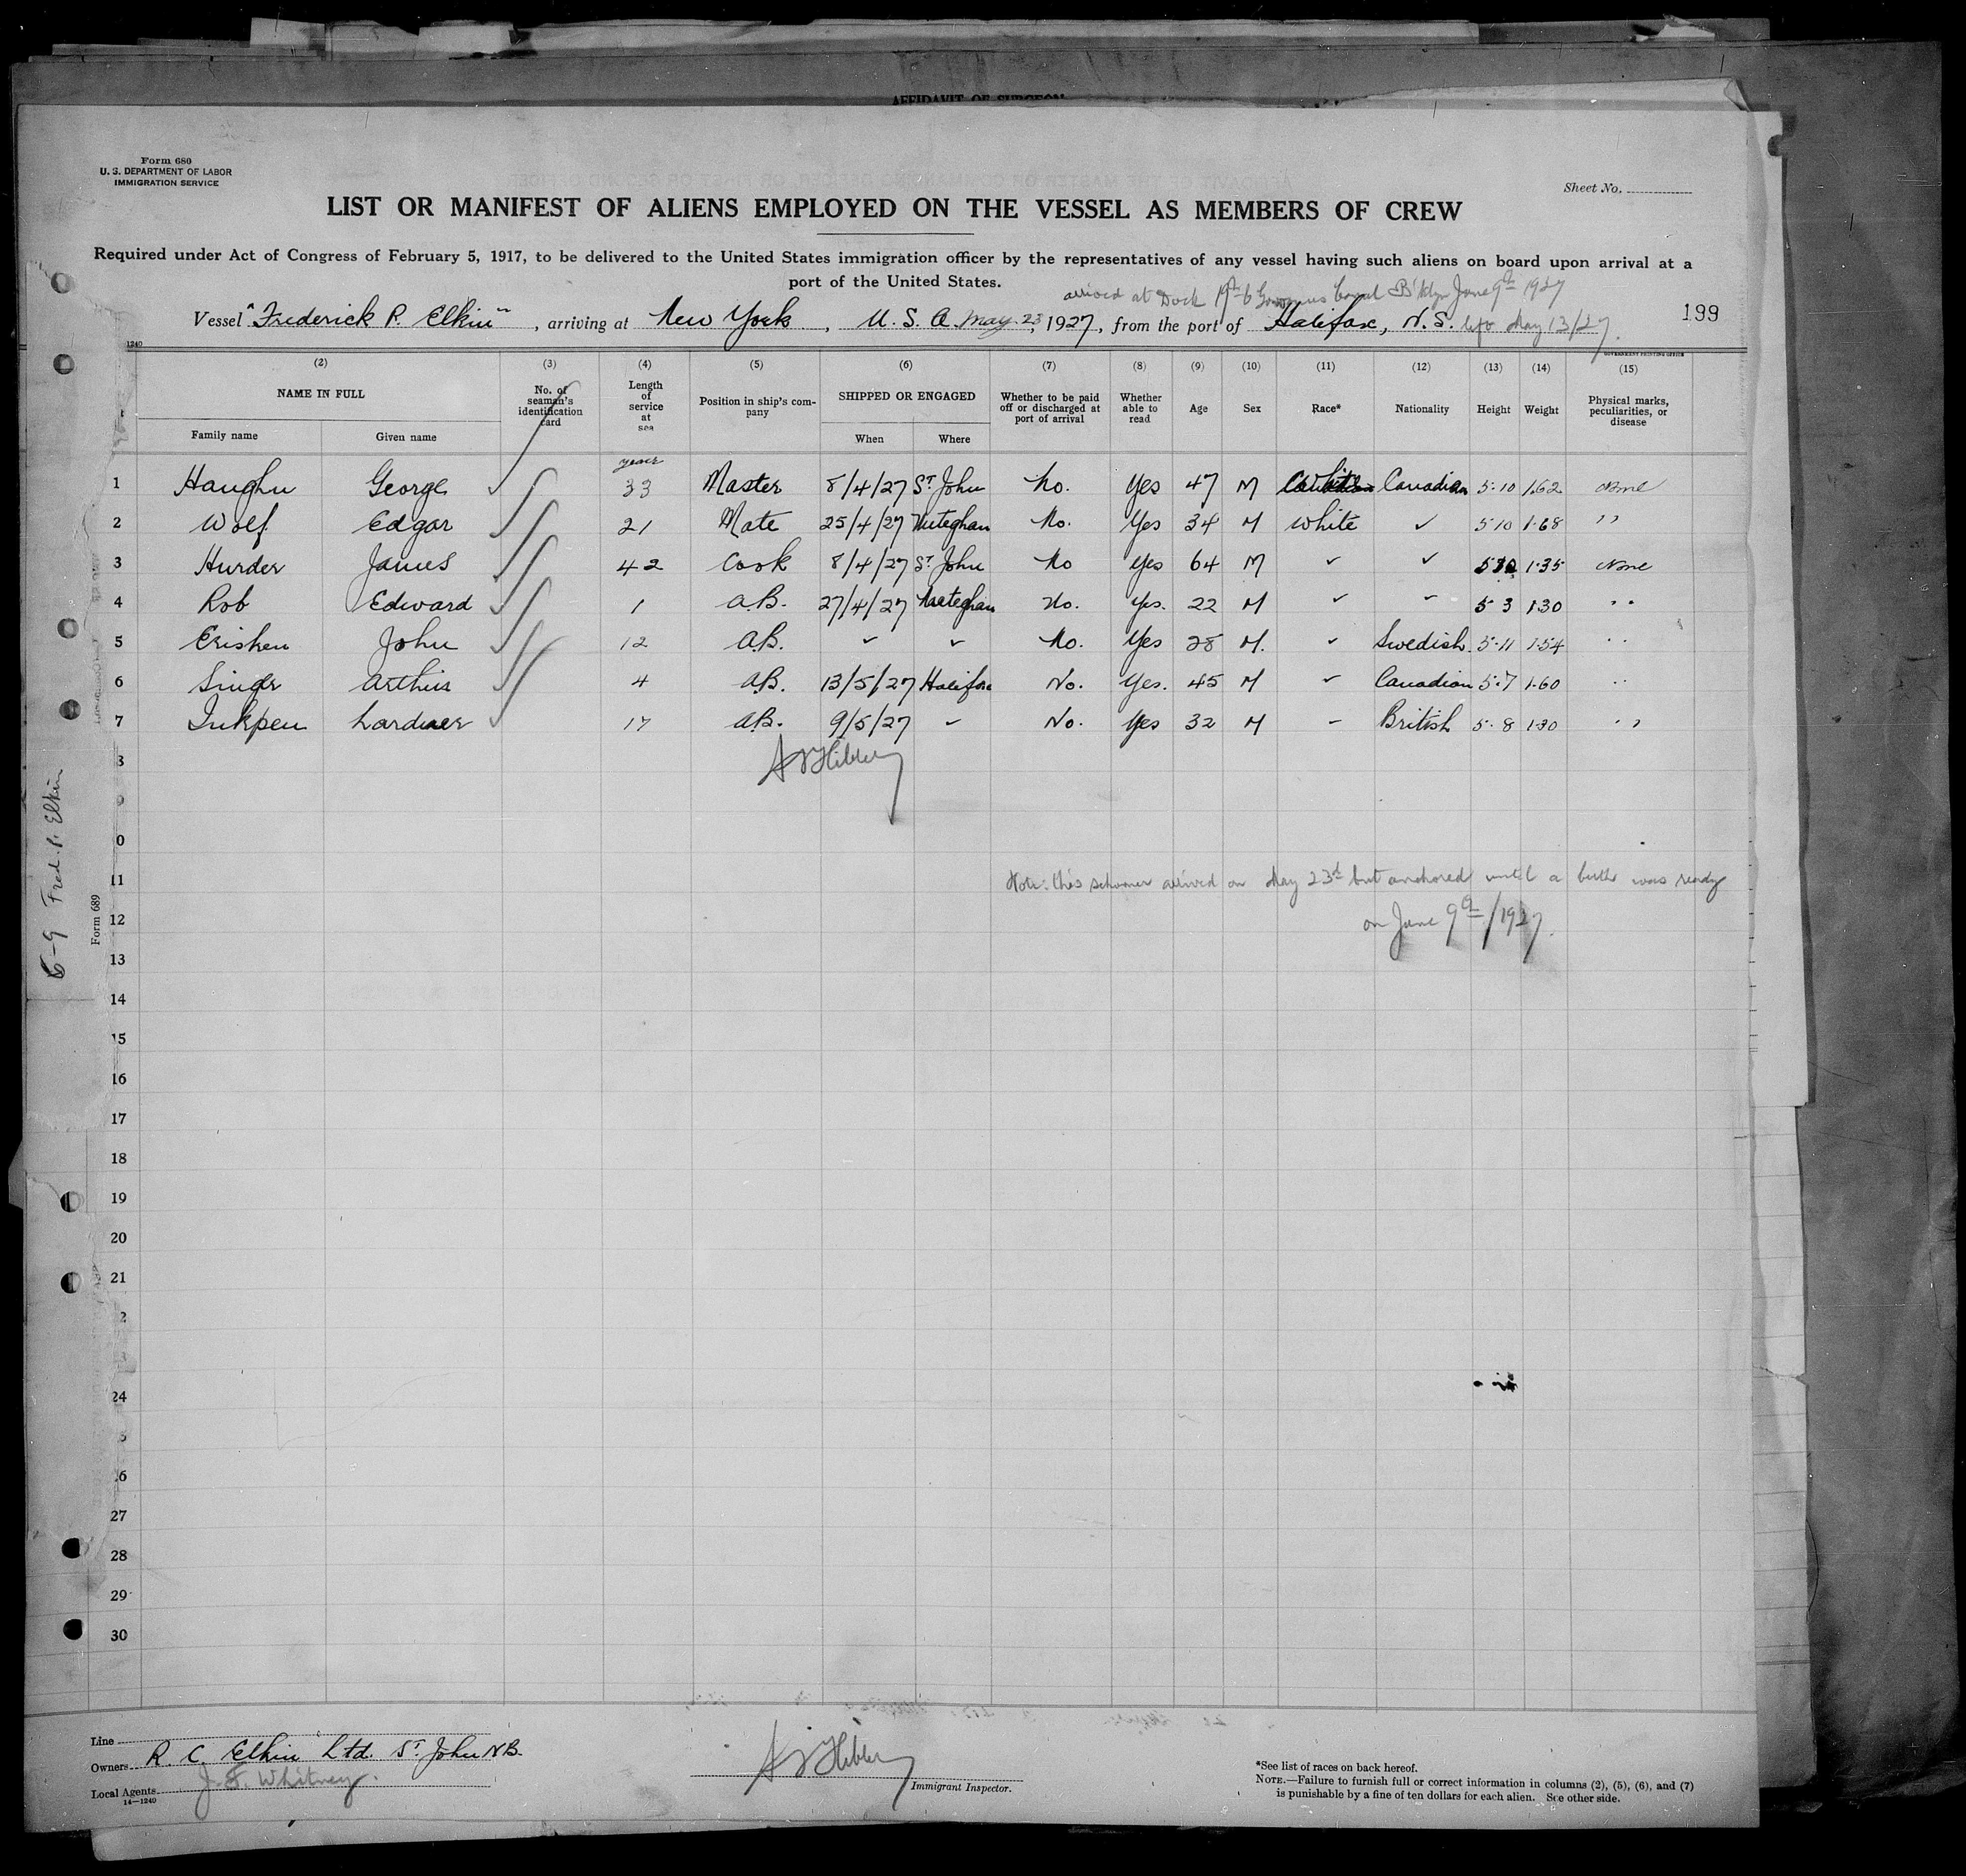 AFFIDAVIT OF SURGEON
Form 680
U. S. DEPARTMENT OF LABOR
IMMIGRATION SERVICE
Sheet No.
LIST OR MANIFEST OF ALIENS EMPLOYED ON THE VESSEL AS MEMBERS OF CREW
Required under Act of Congress of February 5, 1917, to be delivered to the United States immigration officer by the representatives of any vessel having such aliens on board upon arrival at a
port of the United States.
arrived at Dock B'klyn June 9th 1927
Vessel "Frederick P. Elkin", arriving at New York, U. S. A. May 23, 1927, from the port of Halifax, N. S. left May 13/27.
199
1240
GOVERNMENT PRINTING OFFICE
(2) (3) (4) (5) (6) (7) (8) (9) (10) (11) (12) (13) (14) (15)
NAME IN FULL No. of seaman's identification card Length of service at sea Position in ship's company SHIPPED OR ENGAGED Whether to be paid off or discharged at port of arrival Whether able to read Age Sex Race* Nationality Height Weight Physical marks, peculiarities, or disease
Family name Given name When Where
years
1 Haughn George ✓ 33 Master 8/4/27 St. John No. Yes 47 M White Canadian 5-10 1.62 None
2 Wolf Edgar ✓ 21 Mate 25/4/27 Meteghan No. Yes 34 M White ✓ 5-10 1.68 ,,
3 Hurder James ✓ 42 Cook 8/4/27 St. John No Yes 64 M ✓ ✓ 1.35 None
4 Rob Edward ✓ 1 A.B. 27/4/27 Meteghan No. Yes. 22 M ✓ ✓ 5 3 130 ,,
5 Erisken John ✓ 12 A.B. ✓ ✓ No. Yes 28 M. ✓ Swedish 5-11 1.54 ,,
6 Singer Arthur ✓ 4 A.B. 13/5/27 Halifax No. Yes. 45 M ✓ Canadian 5.7 1.60 ,,
7 Inkpen Lardner ✓ 17 A.B. 9/5/27 ✓ No. Yes 32 M - British 5-8 130 ,,
0
11
Note: this schooner arrived on May 23rd but anchored until a berth was ready
12
on June 9th/1927.
13
14
15
16
17
18
19
20
21
24
27
28
29
30
6-9 Fred. P. Elkin
Form 689
Line
Owners R. C. Elkin Ltd. St. John NB.
Local Agents J. F. Whitney.
14—1240
Immigrant Inspector.
*See list of races on back hereof.
NOTE.—Failure to furnish full or correct information in columns (2), (5), (6), and (7)
is punishable by a fine of ten dollars for each alien. See other side.